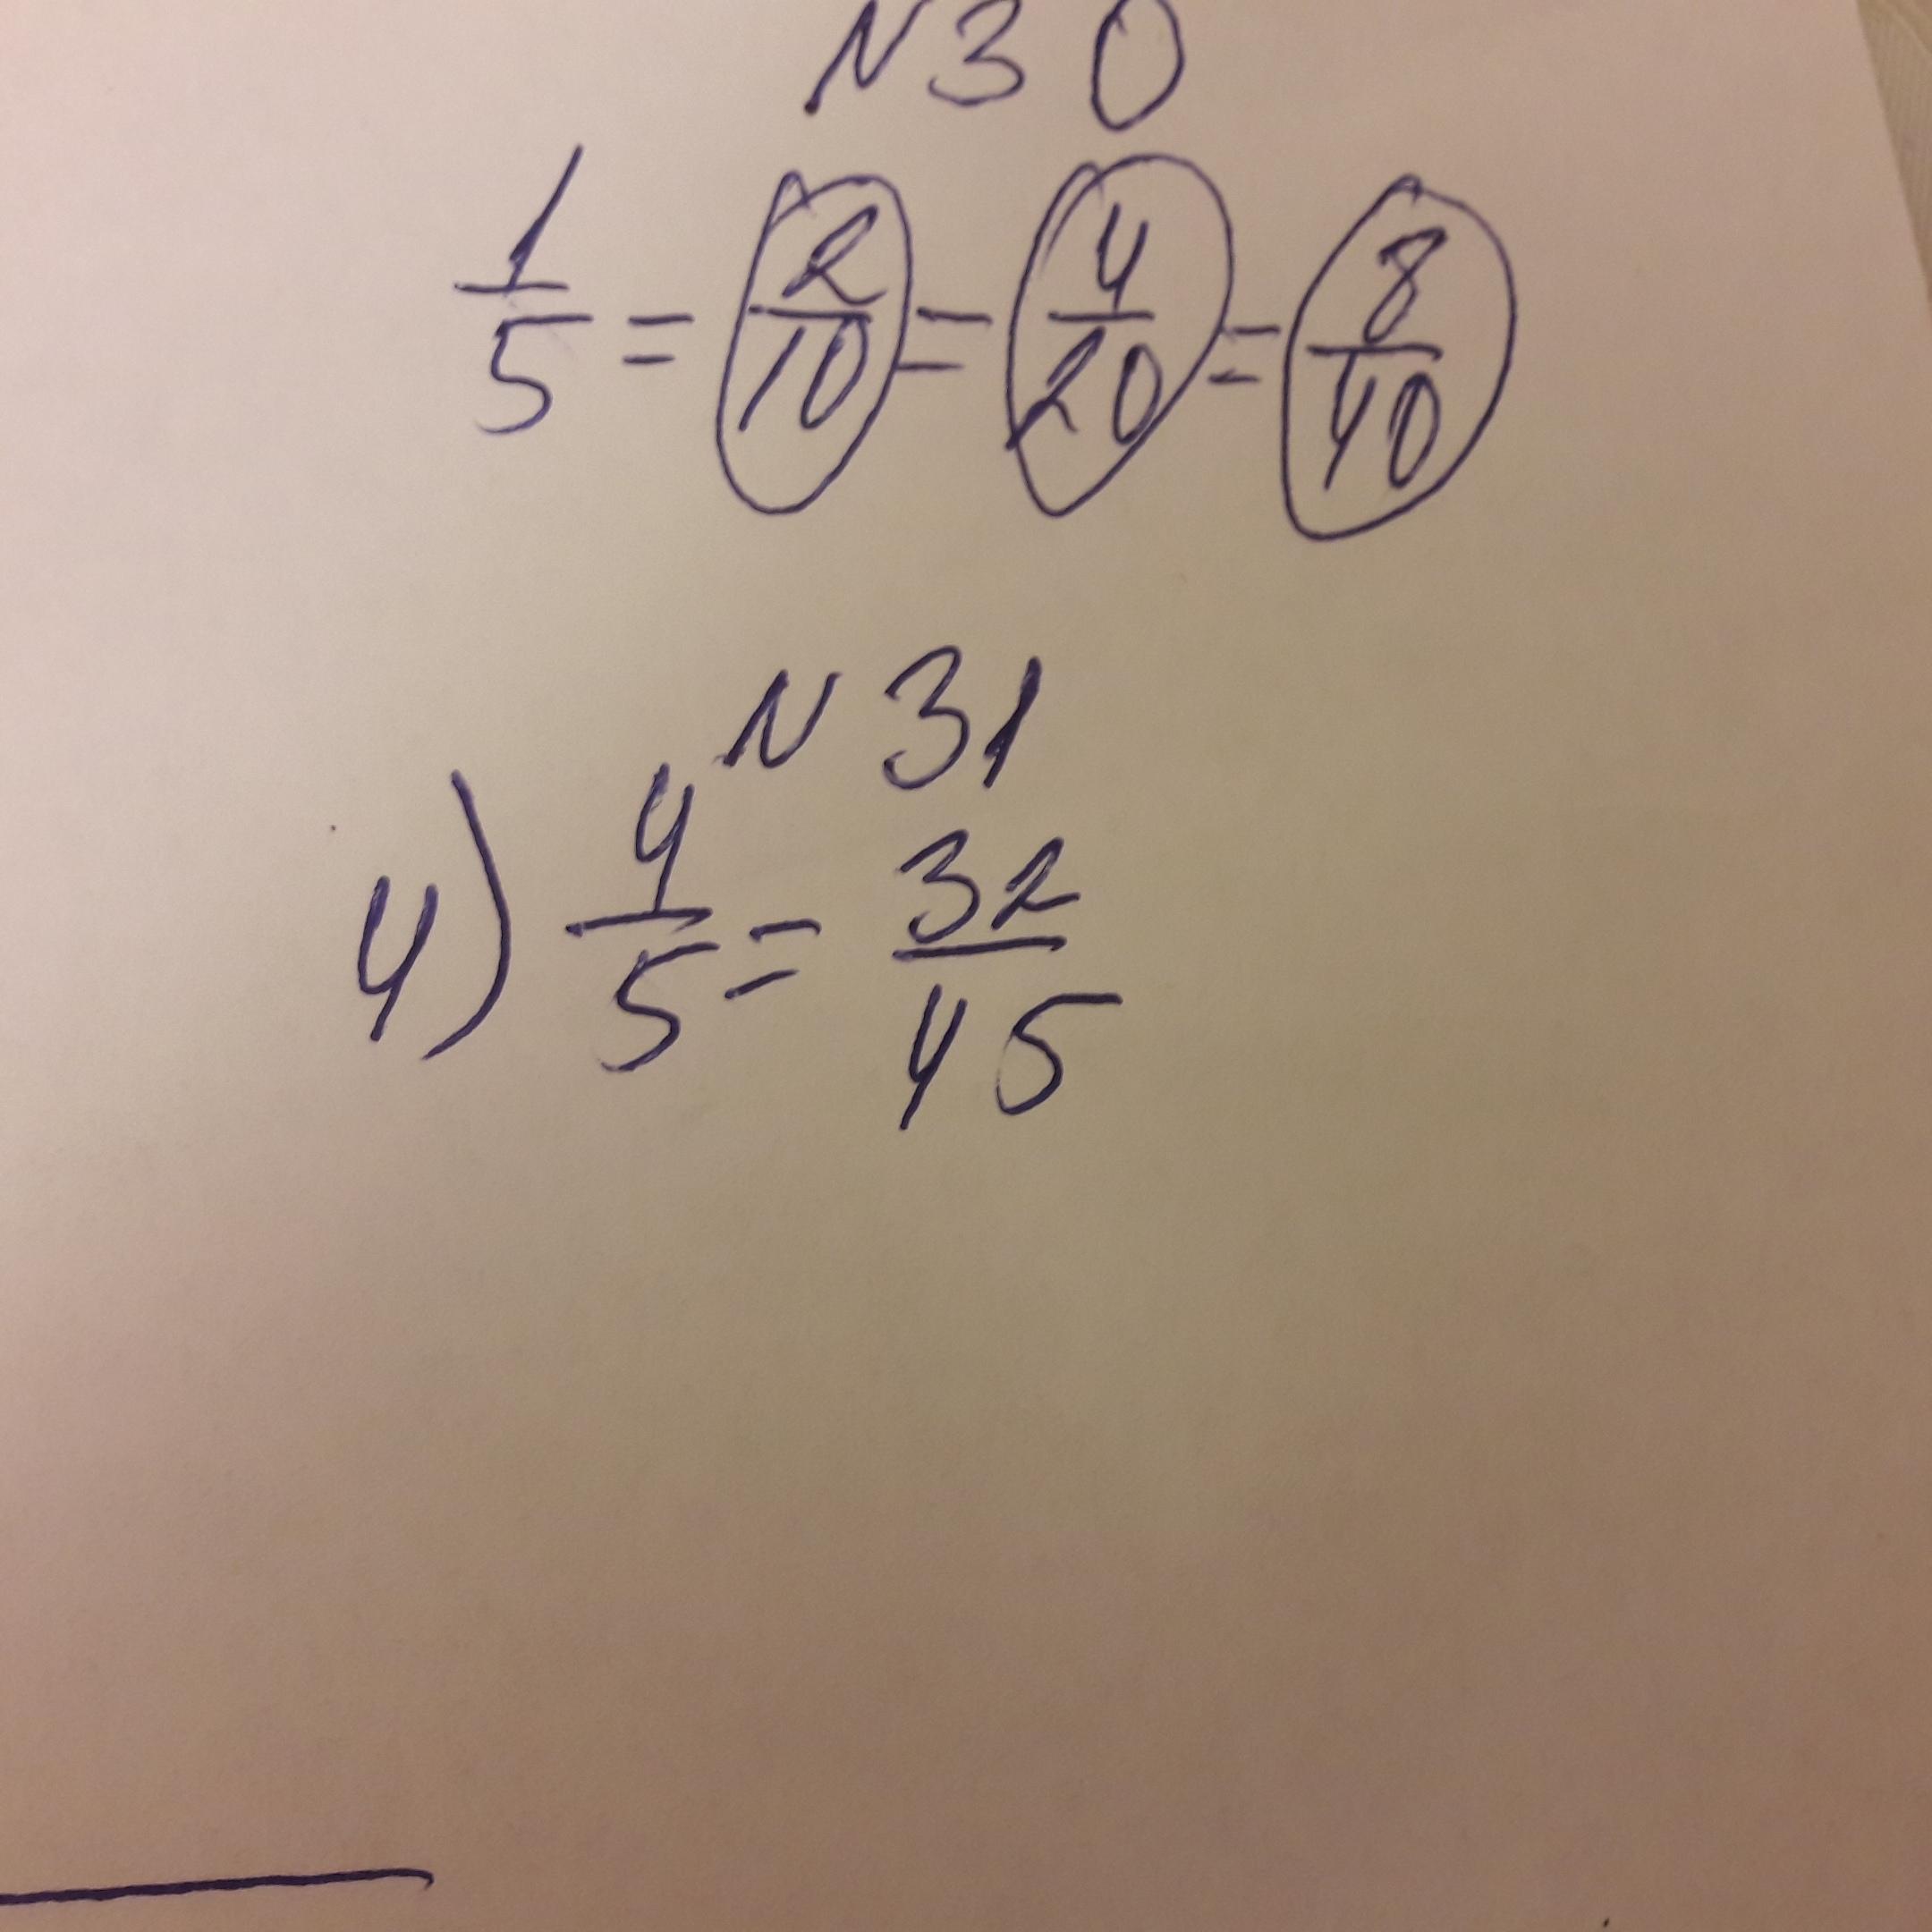 N30
1/5 = 2/10 = 4/20 = 8/40
N31
4) 4/5 = 32/45